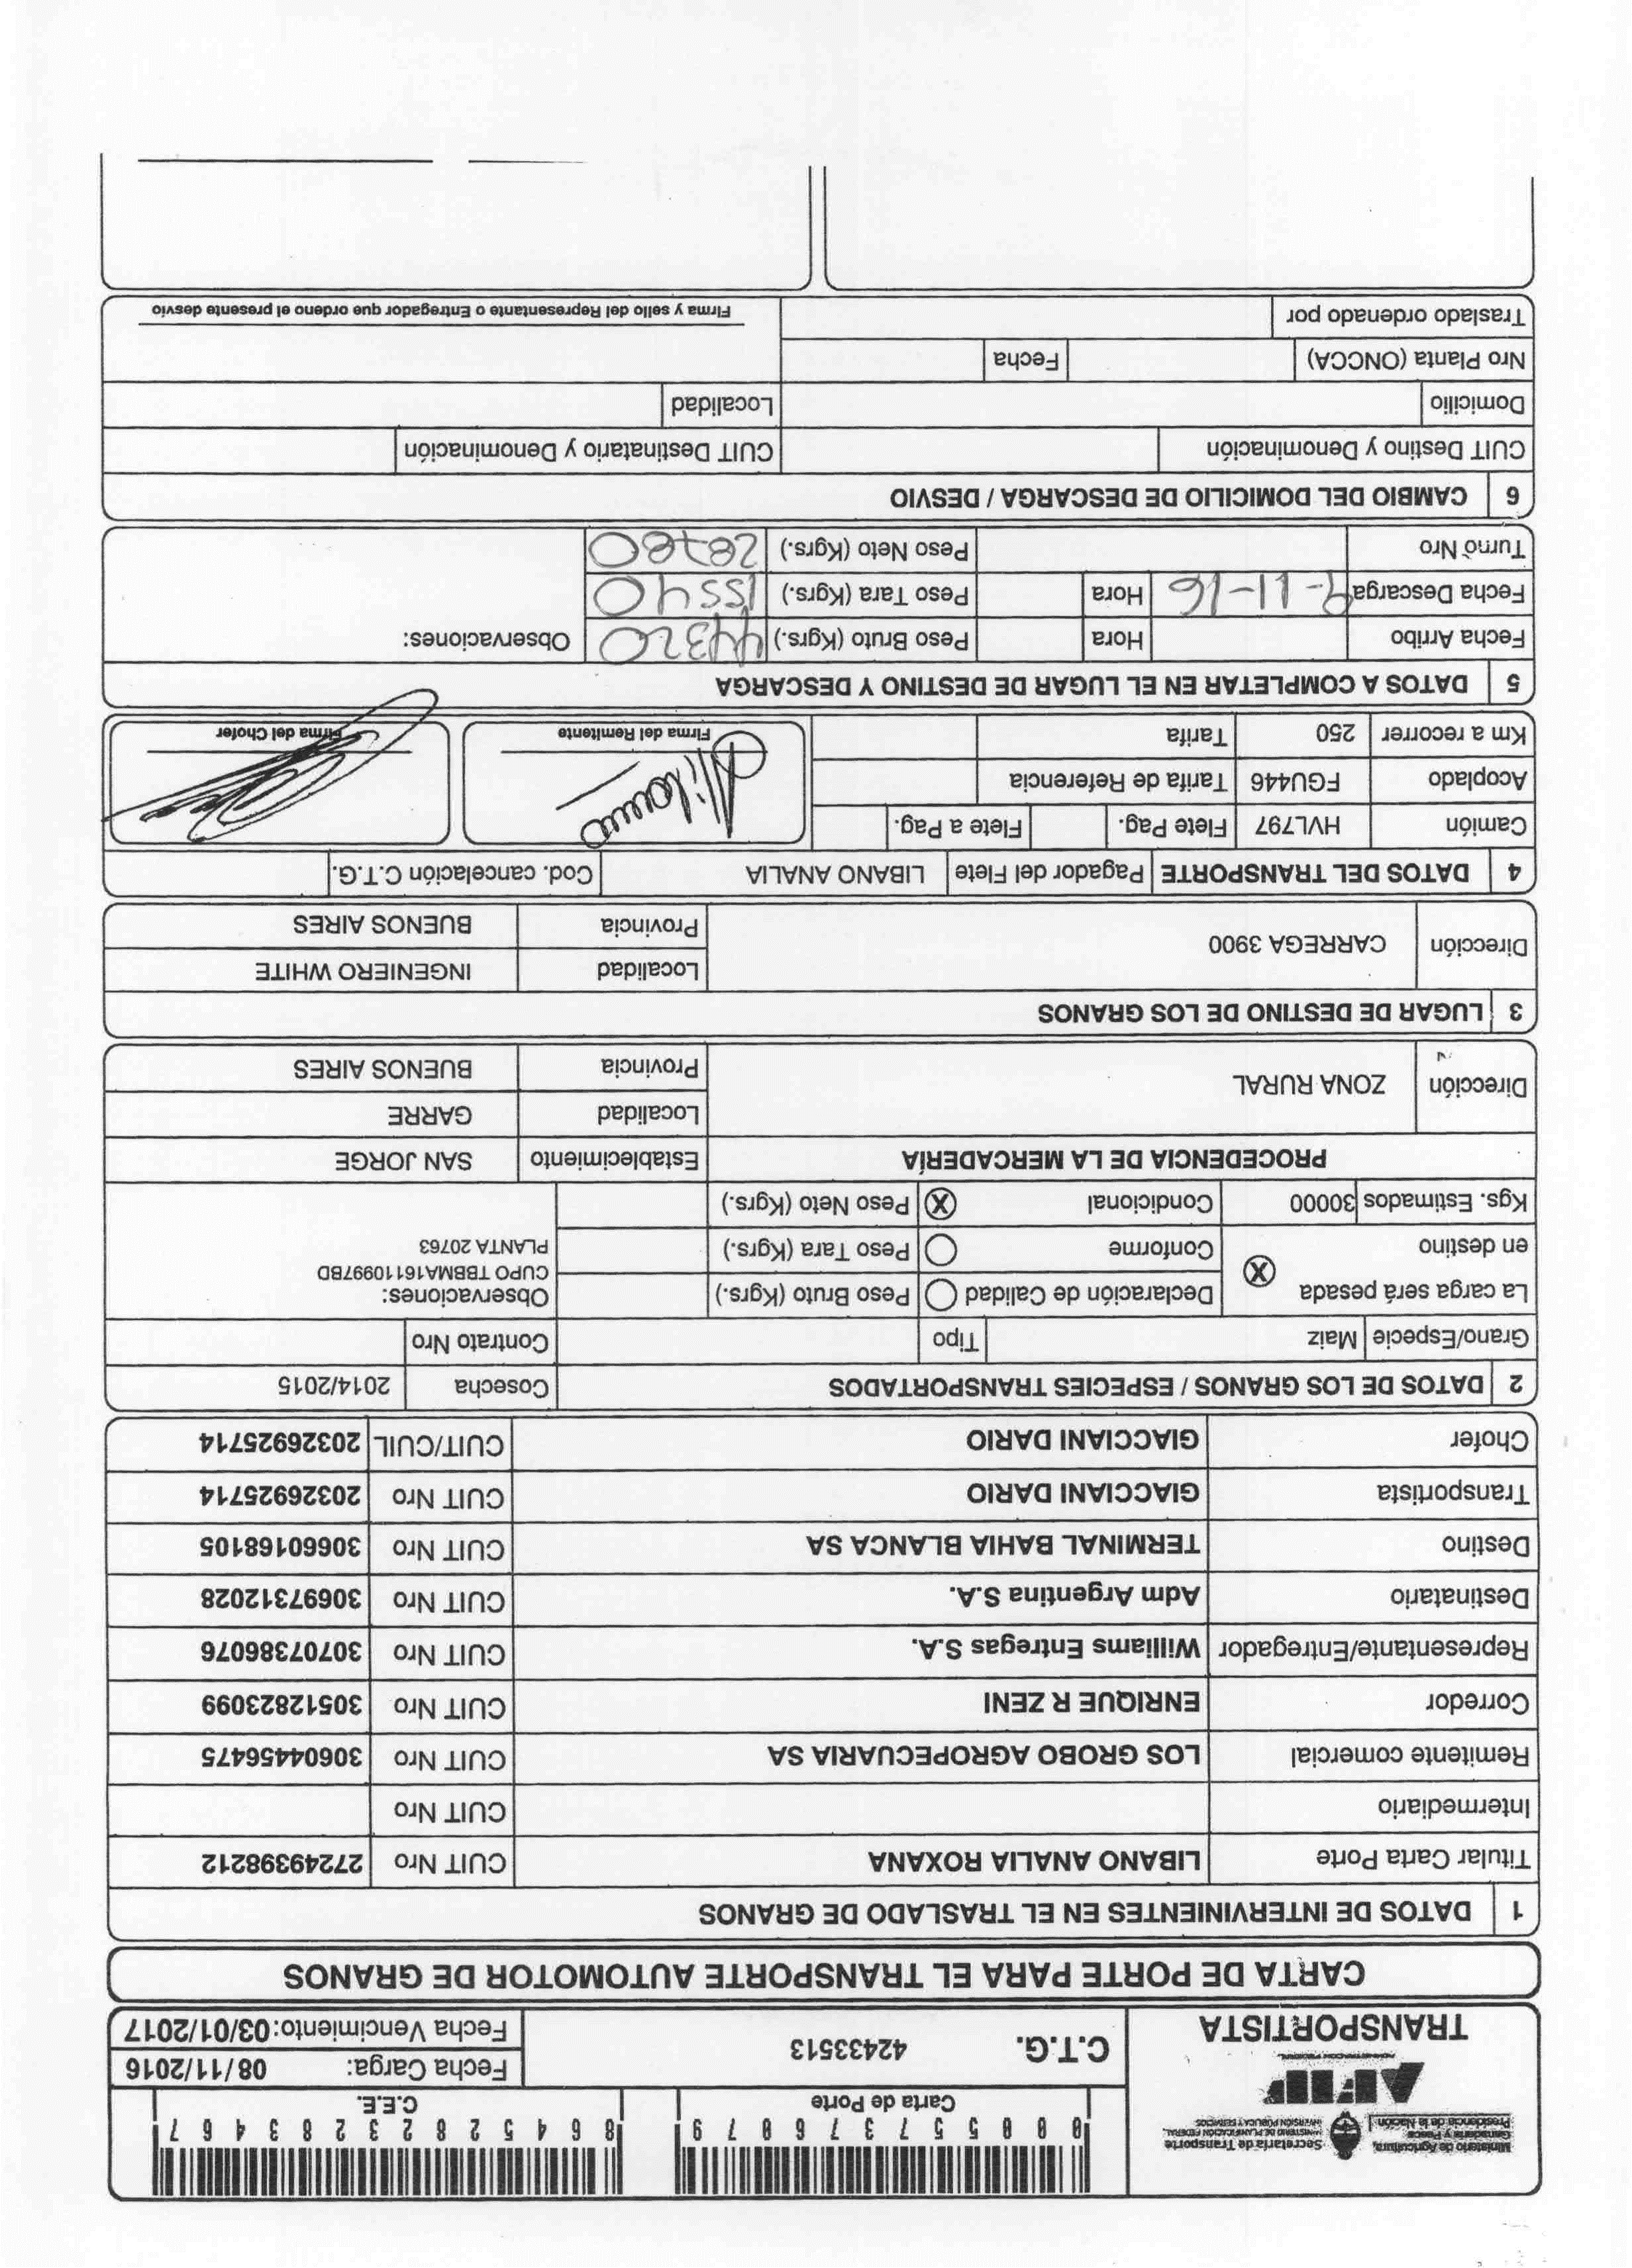 Ministerio de Agricultura,
Ganadería y Pesca
Presidencia de la Nación
Secretaría de Transporte
MINISTERIO DE PLANIFICACIÓN FEDERAL,
INVERSIÓN PÚBLICA Y SERVICIOS
AFIP
TRANSPORTISTA
Carta de Porte
8 6 4 5 2 8 2 3 2 8 3 4 6 7
C.E.E.
C.T.G. 42433513
Fecha Carga: 08/11/2016
Fecha Vencimiento: 03/01/2017
CARTA DE PORTE PARA EL TRANSPORTE AUTOMOTOR DE GRANOS
1 DATOS DE INTERVINIENTES EN EL TRASLADO DE GRANOS
Titular Carta Porte LIBANO ANALIA ROXANA CUIT Nro 27249398212
Intermediario CUIT Nro
Remitente comercial LOS GROBO AGROPECUARIA SA CUIT Nro 30604456475
Corredor ENRIQUE R ZENI CUIT Nro 30512823099
Representante/Entregador Williams Entregas S.A. CUIT Nro 30707386076
Destinatario Adm Argentina S.A. CUIT Nro 30697312028
Destino TERMINAL BAHIA BLANCA SA CUIT Nro 30660168105
Transportista GIACCIANI DARIO CUIT Nro 20326925714
Chofer GIACCIANI DARIO CUIT/CUIL 20326925714
2 DATOS DE LOS GRANOS / ESPECIES TRANSPORTADOS Cosecha 2014/2015
Grano/Especie Maiz Tipo Contrato Nro
La carga será pesada
en destino X
Declaración de Calidad Peso Bruto (Kgrs.)
Conforme Peso Tara (Kgrs.)
Kgs. Estimados 30000 Condicional X Peso Neto (Kgrs.)
Observaciones:
CUPO TBBMA16110997BD
PLANTA 20763
PROCEDENCIA DE LA MERCADERÍA Establecimiento SAN JORGE
Dirección ZONA RURAL
Localidad GARRE
Provincia BUENOS AIRES
3 LUGAR DE DESTINO DE LOS GRANOS
Dirección CARREGA 3900
Localidad INGENIERO WHITE
Provincia BUENOS AIRES
4 DATOS DEL TRANSPORTE Pagador del Flete LIBANO ANALIA Cod. cancelación C.T.G.
Camión HVL797 Flete Pag. Flete a Pag.
Acoplado FGU446 Tarifa de Referencia
Km a recorrer 250 Tarifa
Firma del Remitente
Firma del Chofer
5 DATOS A COMPLETAR EN EL LUGAR DE DESTINO Y DESCARGA
Fecha Arribo Hora Peso Bruto (Kgrs.) 44320 Observaciones:
Fecha Descarga 9-11-16 Hora Peso Tara (Kgrs.) 15540
Turno Nro Peso Neto (Kgrs.) 28780
6 CAMBIO DEL DOMICILIO DE DESCARGA / DESVIO
CUIT Destino y Denominación CUIT Destinatario y Denominación
Domicilio Localidad
Nro Planta (ONCCA) Fecha
Traslado ordenado por
Firma y sello del Representante o Entregador que ordeno el presente desvio